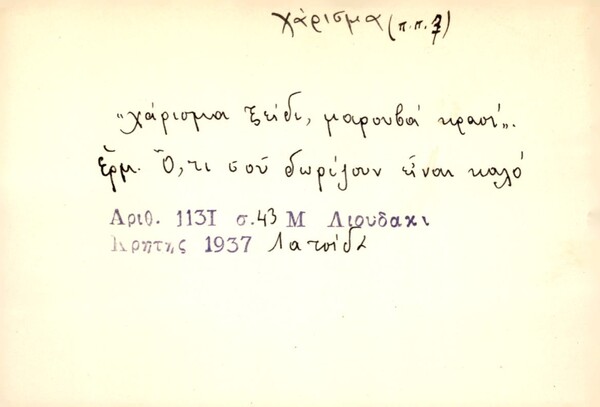 χάρισμα (π.π. 7)
"Χάρισμα ξείδι, μαρουβά κρασί".
Ἑρμ. Ὅ,τι σοῦ δωρίζουν εἶναι καλό
Αριθ. 1131 σ.43 Μ Λιουδακι
Κρητης 1937 Λατσίδα